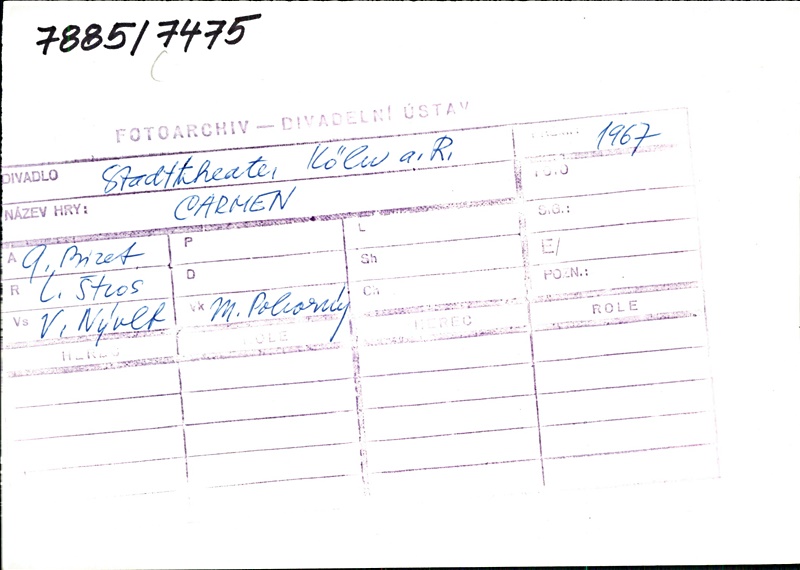 7885/7475
FOTOARCHIV — DIVADELNÍ ÚSTAV
DIVADLO Stadttheater Köln a. R. 1967
NÁZEV HRY: CARMEN FOTO
A G. Bizet P L SIG.:
R L. Štros D Sh E/
Vs V. Nývlt Vk M. Pokorný Ch POZN.:
HEREC ROLE HEREC ROLE